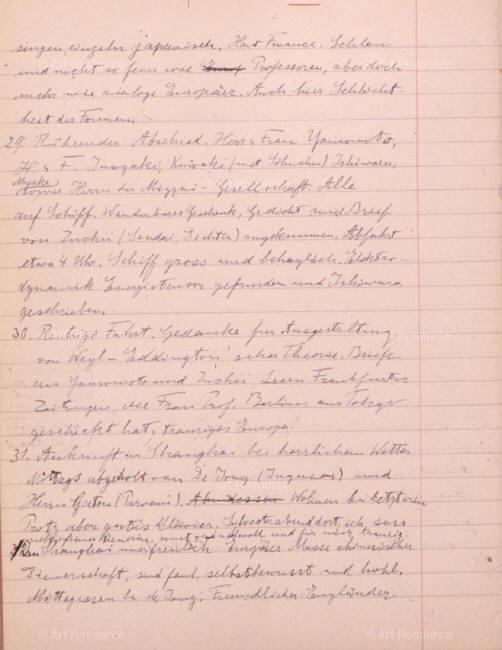 © Art Resource
© Art Resource
singen, einzeln japanisch. Haute Finance. Schlau
und nicht so fein wie Professoren, aber doch
mehr wie analoge Europäer. Auch hier Schlicht
heit der Formen
29. Rührender Abschied. Herr u Frau Yamamoto,
H. u F. Inagaki, Kuwaki (mit Söhnchen) Ishiwara,
Miyake
sowie Herren der Gesellschaft. Alle
auf Schiff. Wunderbares Geschenk, Gedicht und Brief
von Zuchii (Sendai, Dichter) angekommen. Abfahrt
etwa 4 Uhr. Schiff gross und behaglich. Elektro-
dynamik Energietensor gefunden und Ishiwara
geschrieben.
30. Ruhige Fahrt. Gedanke für Ausgestaltung
von Weyl-Eddington'scher Theorie. Briefe
an Yamomoto und Zuchii. Lesen Frankfurter
Zeitungen, die Frau Prof. Berliner aus Tokyo
geschickt hat, trauriges Europa!
31. Ankunft in Shanghai bei herrlichem Wetter
Mittags abgeholt von De Jong (Ingenieur) und
Herrn Gaton. Wohnen bei letzterem
Protz, aber gutes Klavier. Sylvesterabend dort, ich sass
neben und für mich traurig.
1. Jan Shanghai unerfreulich. Europäer Masse chinesischer
Dienerschaft, sind faul, selbstbewusst und hohl.
Mittagessen b. de Jong. Freundlicher Engländer
© Art Resource
© Art Resource